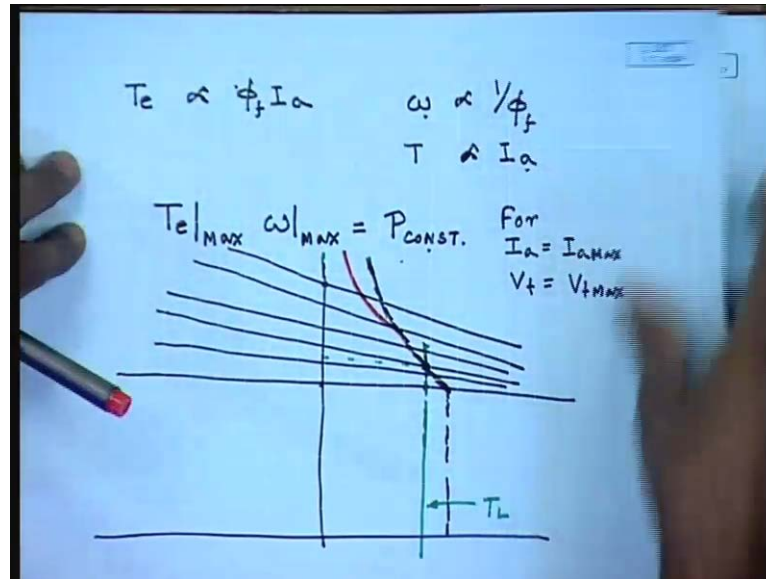 Te ∝ ϕf Ia
ω ∝ 1/ϕf
T ∝ Ia
Te|MAX ω|MAX = PCONST. For
Ia = IaMAX
Vt = VtMAX
TL